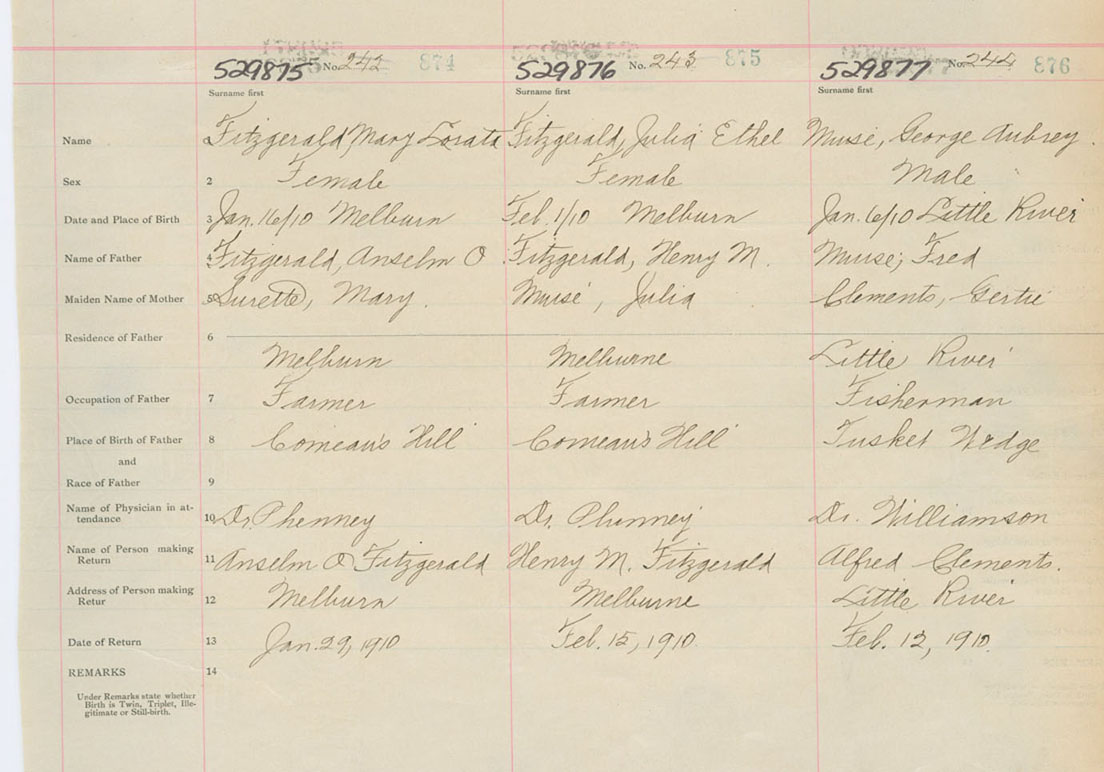 529875 No. 242 874 529876 No. 243 875 529877 No. 244 876
Surname first Surname first Surname first
Name Fitzgerald, Mary Lorata Fitzgerald, Julia Ethel Muise, George Aubrey.
Sex 2 Female Female Male
Date and Place of Birth 3 Jan. 16/10 Melburn Feb. 1/10 Melburn Jan. 6/10 Little River
Name of Father 4 Fitzgerald, Anselm O Fitzgerald, Henry M. Muise, Fred
Maiden Name of Mother 5 Surette, Mary. Muise, Julia Clements, Gertie
Residence of Father 6
Melburn Melburne Little River
Occupation of Father 7 Farmer Farmer Fisherman
Place of Birth of Father 8 Comeau's Hill Comeau's Hill Tusket Wedge
and
Race of Father 9
Name of Physician in at-
tendance 10 Dr. Phenney Dr. Phinney Dr. Williamson
Name of Person making
Return 11 Anselm O Fitzgerald Henry M. Fitzgerald Alfred Clements.
Address of Person making
Retur 12 Melburn Melburne Little River
Date of Return 13 Jan. 29, 1910 Feb. 15, 1910 Feb. 12, 1910.
REMARKS 14
Under Remarks state whether
Birth is Twin, Triplet, Ille-
gitimate or Still-birth.